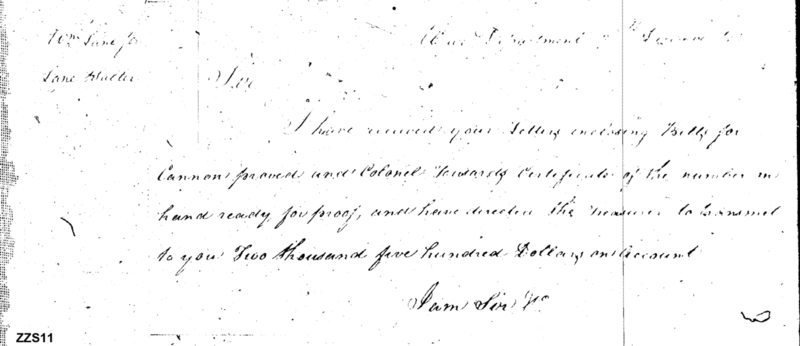 Wm Lane Jr War Department
Lane Hall Sir
I have received your Letters enclosing Bills for
Cannon proved and Colonel Certificate of the number in
hand ready for proof, and have directed the Treasurer to transmit
to you Two thousand five hundred Dollars on Account
I am Sir &c
ZZS11